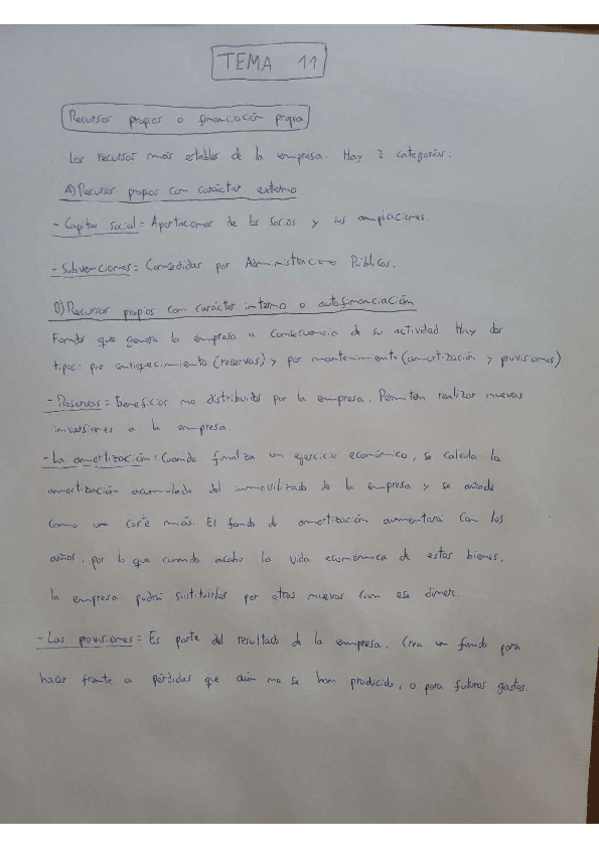 TEMA 11
Recursos propios o financiación propia
Los recursos más estables de la empresa. Hay 2 categorías:
A) Recursos propios con carácter externo
- Capital social = Aportaciones de los socios y sus ampliaciones.
- Subvenciones = Concedidas por Administraciones Públicas.
B) Recursos propios con carácter interno o autofinanciación
Fondos que genera la empresa a consecuencia de su actividad. Hay dos
tipos: por enriquecimiento (reservas) y por mantenimiento (amortización y provisiones)
- Reservas = Beneficios no distribuidos por la empresa. Permiten realizar nuevas
inversiones a la empresa.
- La amortización: Cuando finaliza un ejercicio económico, se calcula la
amortización acumulada del inmovilizado de la empresa y se añade
como un coste más. El fondo de amortización aumentará con los
años, por lo que cuando acabe la vida económica de estos bienes,
la empresa podrá sustituirlos por otros nuevos con ese dinero.
- Las provisiones = Es parte del resultado de la empresa. Crea un fondo para
hacer frente a pérdidas que aún no se han producido, o para futuros gastos.